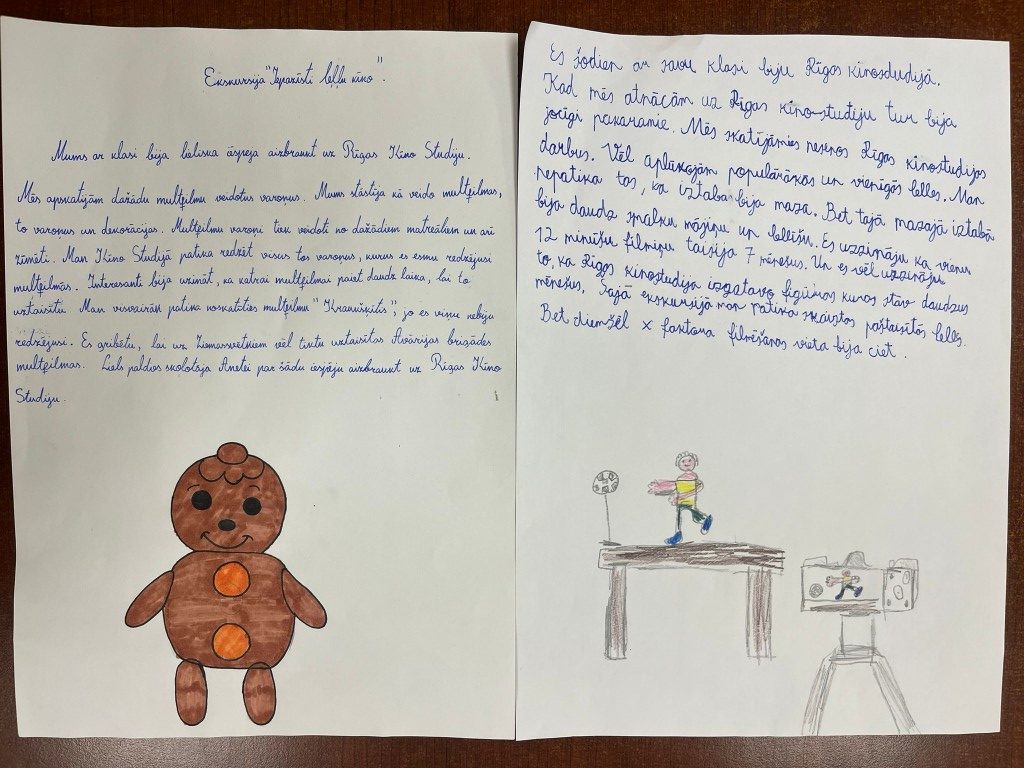 Ekskursija "Iepazīsti leļļu kino".
Mums ar klasi bija lieliska iespēja aizbraukt uz Rīgas Kino Studiju.
Mēs apskatījām dažādu multfilmu veidotus varoņus. Mums stāstīja kā veido multfilmas,
to varoņus un dekorācijas. Multfilmu varoņi tiek veidoti no dažādiem matreāliem un arī
zīmēti. Man Kino Studijā patika redzēt visus tos varoņus, kurus es esmu redzējusi
multfilmās. Interesanti bija uzināt, ka katrai multfilmai paiet daudz laika, lai to
uztaisītu. Man visvairāk patika noskatīties multfilmu "Kramušķītis", jo es viņu nebiju
redzējusi. Es gribētu, lai uz Ziemassvētkiem vēl tiktu uztaisītas Avārijas brigādes
multfilmas. Liels paldies skolotājai Anetei par šādu iespēju aizbraukt uz Rīgas Kino
Studiju.
Es šodien ar savu klasi biju Rīgas kinostudijā.
Kad mēs atnācām uz Rīgas kino-studiju tur bija
jocīgi pakaramie. Mēs skatījāmies nesenos Rīgas kinostudijas
darbus. Vēl aplūkojām populārākas un vienīgās lelles. Man
nepatika tas, ka iztaba bija maza. Bet tajā mazajā iztabā
bija daudz smalku mājiņu un lellīšu. Es uzzināju ka vienu
12 minūšu filmiņu taisīja 7 mēnešus. Un es vēl uzzināju
to, ka Rīgas kinostudija izgatavo figūras kuras stāv daudzus
mēnešus. Šajā ekskursijā man patika skaistās paštaisītās lelles.
Bet diemžēl x faktora filmēšanas vieta bija ciet.